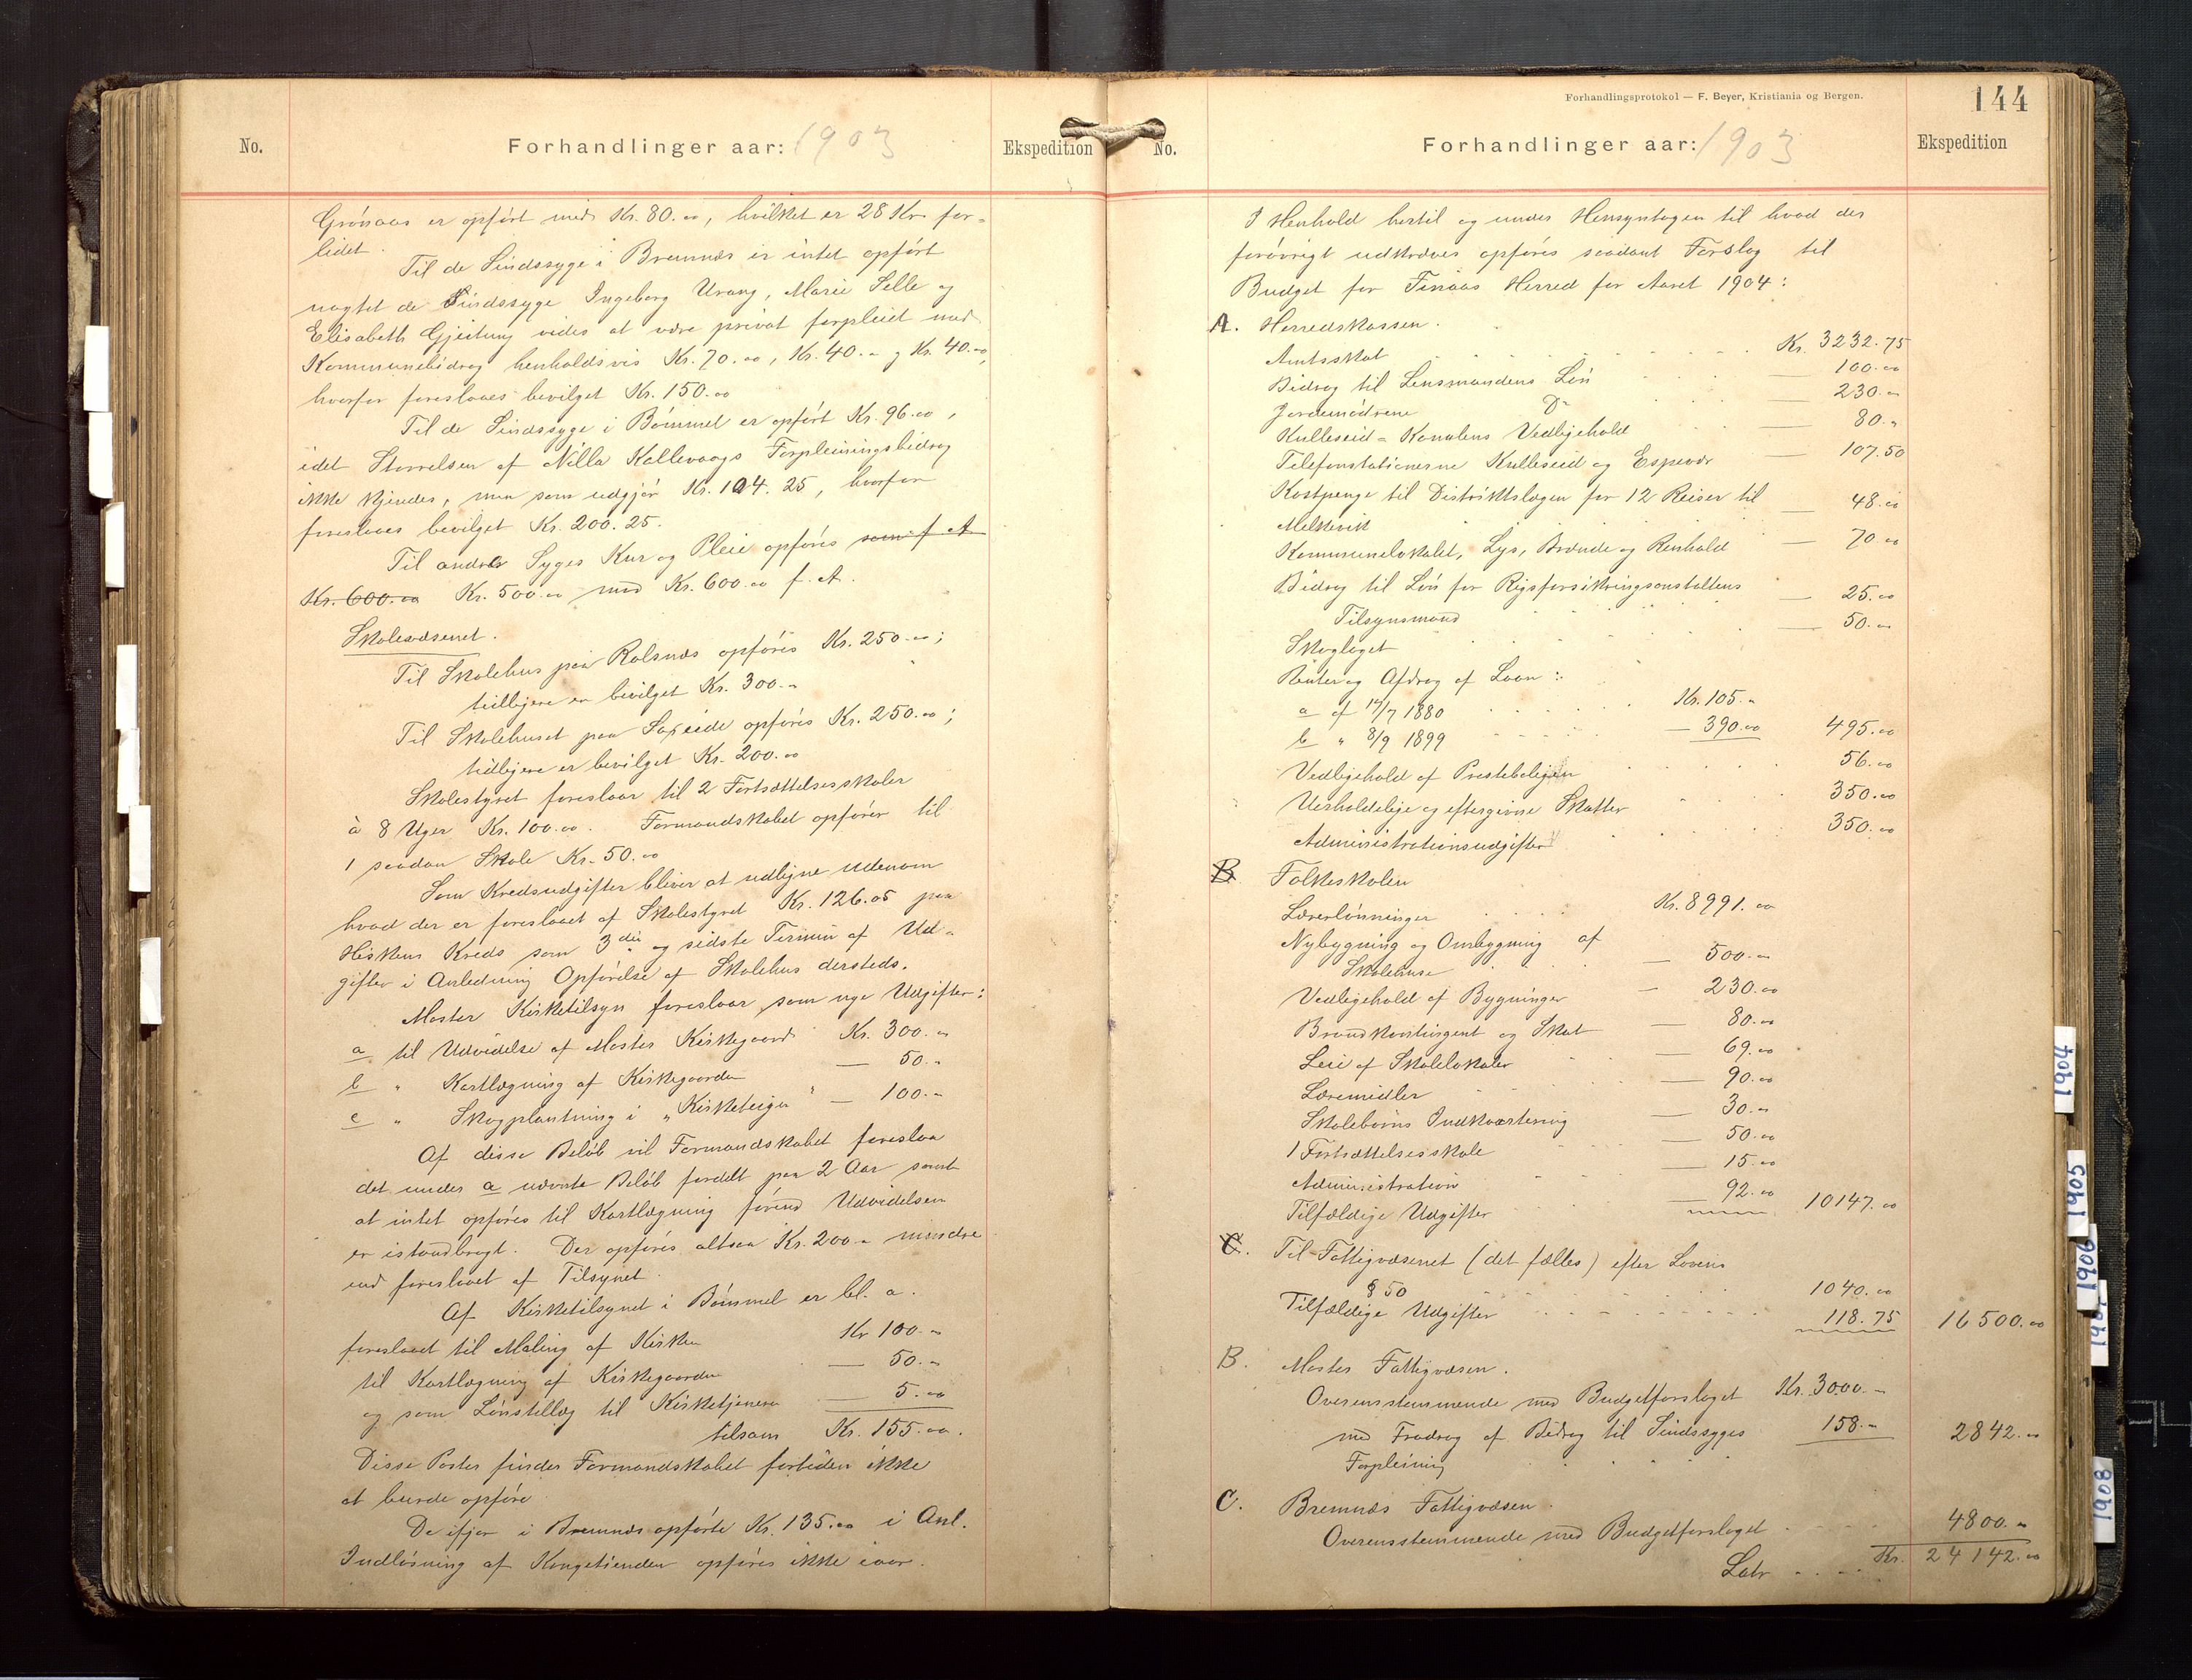 No.
Forhandlinger aar: 1903
Ekspedition
Grönaas er opført med Kr. 80.00, hvilket er 28 Kr for-
lidet.
Til de Sindssyge i Bremnæs er intet opført
uagtet de Sindssyge Ingeborg Urang, Marie Selle og
Elisabeth Gjeitung vides at være privat forpleiet med
Kommunebidrag henholdsvis Kr. 70.00, Kr. 40.00 og Kr. 40.00,
hvorfor foreslaaes bevilget Kr. 150.00
Til de Sindssyge i Bömmel er opfört Kr. 96.00,
idet Størrelsen af Nilla Kallevaags Forpleiningsbidrag
ikke kjendes, men som udgjør Kr. 104.25, hvorfor
foreslaaes bevilget Kr. 200.25.
Til andres Syges Kur og Pleie opföres som f. A.
Kr. 600.00 Kr. 500.00 mod Kr. 600.00 f. A.
Skolevæsenet.
Til Skolehus paa Rolsnæs opföres Kr. 250.00;
tidligere er bevilget Kr. 300.00
Til Skolehuset paa Söreide opföres Kr. 250.00;
tidligere er bevilget Kr. 200.00
Skolestyret foreslaar til 2 Fortsættelsesskoler
à 8 Uger Kr. 100.00. Formandskabet opförer til
1 saadan Skole Kr. 50.00
Som Kredsudgifter bliver at udligne udenom
hvad der er foreslaaet af Skolestyret Kr. 126.05 paa
Hiskens Kreds som 3die og sidste Termin af Ud-
gifter i Anledning Opförelse af Skolehus dersteds.
Moster Kirketilsyn foreslaar som nye Udgifter:
a til Udvidelse af Moster Kirkegaard Kr. 300.00
b " Kartlægning af Kirkegaarden — 50.00
c " Skogplantning i "Kirketeigen" — 100.00
Af disse Beløb vil Formandskabet foreslaa
det under a nævnte Beløb fordelt paa 2 Aar samt
at intet opføres til Kartlægning förend Udvidelsen
er istandbragt. Der opföres altsaa Kr. 200.00 mindre
end foreslaaet af Tilsynet.
Af Kirketilsynet i Bömmel er bl. a.
foreslaaet til Maling af Kirken Kr 100.00
til Kartlægning af Kirkegaarden — 50.00
og som Lönstillæg til Kirketjeneren — 5.00
tilsam Kr. 155.00.
Disse Poster finder Formandskabet fortiden ikke
at burde opføre.
De ifjor i Bremnæs opførte Kr. 135.00 i Anl.
Indlösning af Kongetienden opföres ikke iaar.
Forhandlingsprotokol — F. Beyer, Kristiania og Bergen.
144
No.
Forhandlinger aar: 1903
Ekspedition
I Henhold hertil og under Hensyntagen til hvad der
forövrigt udkræves opföres saadant Forslag til
Budget for Finaas Herred for Aaret 1904:
A. Herredskassen.
Amtsskat Kr. 3232.75
Bidrag til Lensmandens Lön — 100.00
Jordemödrene Do — 230.00
Kulleseid-Kanalens Vedligehold — 80.00
Telefonstationerne Kulleseid og Espevær — 107.50
Kostpenge til Distriktslægen for 12 Reiser til
Melkevik — 48.00
Kommunelokalet, Lys, Brænde og Renhold — 70.00
Bidrag til Lön for Rigsforsikringsanstaltens
Tilsynsmand — 25.00
Skoglaget — 50.00
Renter og Afdrag af Laan:
a af 14/7 1880 Kr. 105.00
b " 8/9 1899 — 390.00 495.00
Vedligehold af Presteboligen 56.00
Uerholdelige og eftergivne Skatter 350.00
Administrationsudgifter 350.00
B Folkeskolen
Lærerlönninger Kr. 8991.00
Nybygning og Ombygning af
Skolehuse — 500.00
Vedligehold af Bygninger — 230.00
Brandkontingent og Skat — 80.00
Leie af Skolelokaler — 69.00
Læremidler — 90.00
Skolebørns Indkvartering — 30.00
1 Fortsættelsesskole — 50.00
Administration — 15.00
Tilfældige Udgifter — 92.00 10147.00
C. Til Fattigvæsenet (det fælles) efter Lovens
§ 50 1040.00
Tilfældige Udgifter 118.75 16500.00
B. Moster Fattigvæsen.
Overensstemmende med Budgetforslaget Kr. 3000.00
med Fradrag af Bidrag til Sindssyges 158.00 2842.00
Forpleining
C. Bremnæs Fattigvæsen.
Overensstemmende med Budgetforslaget 4800.00
Latr Kr. 24142.00
1904
1905
1906
1907
1908